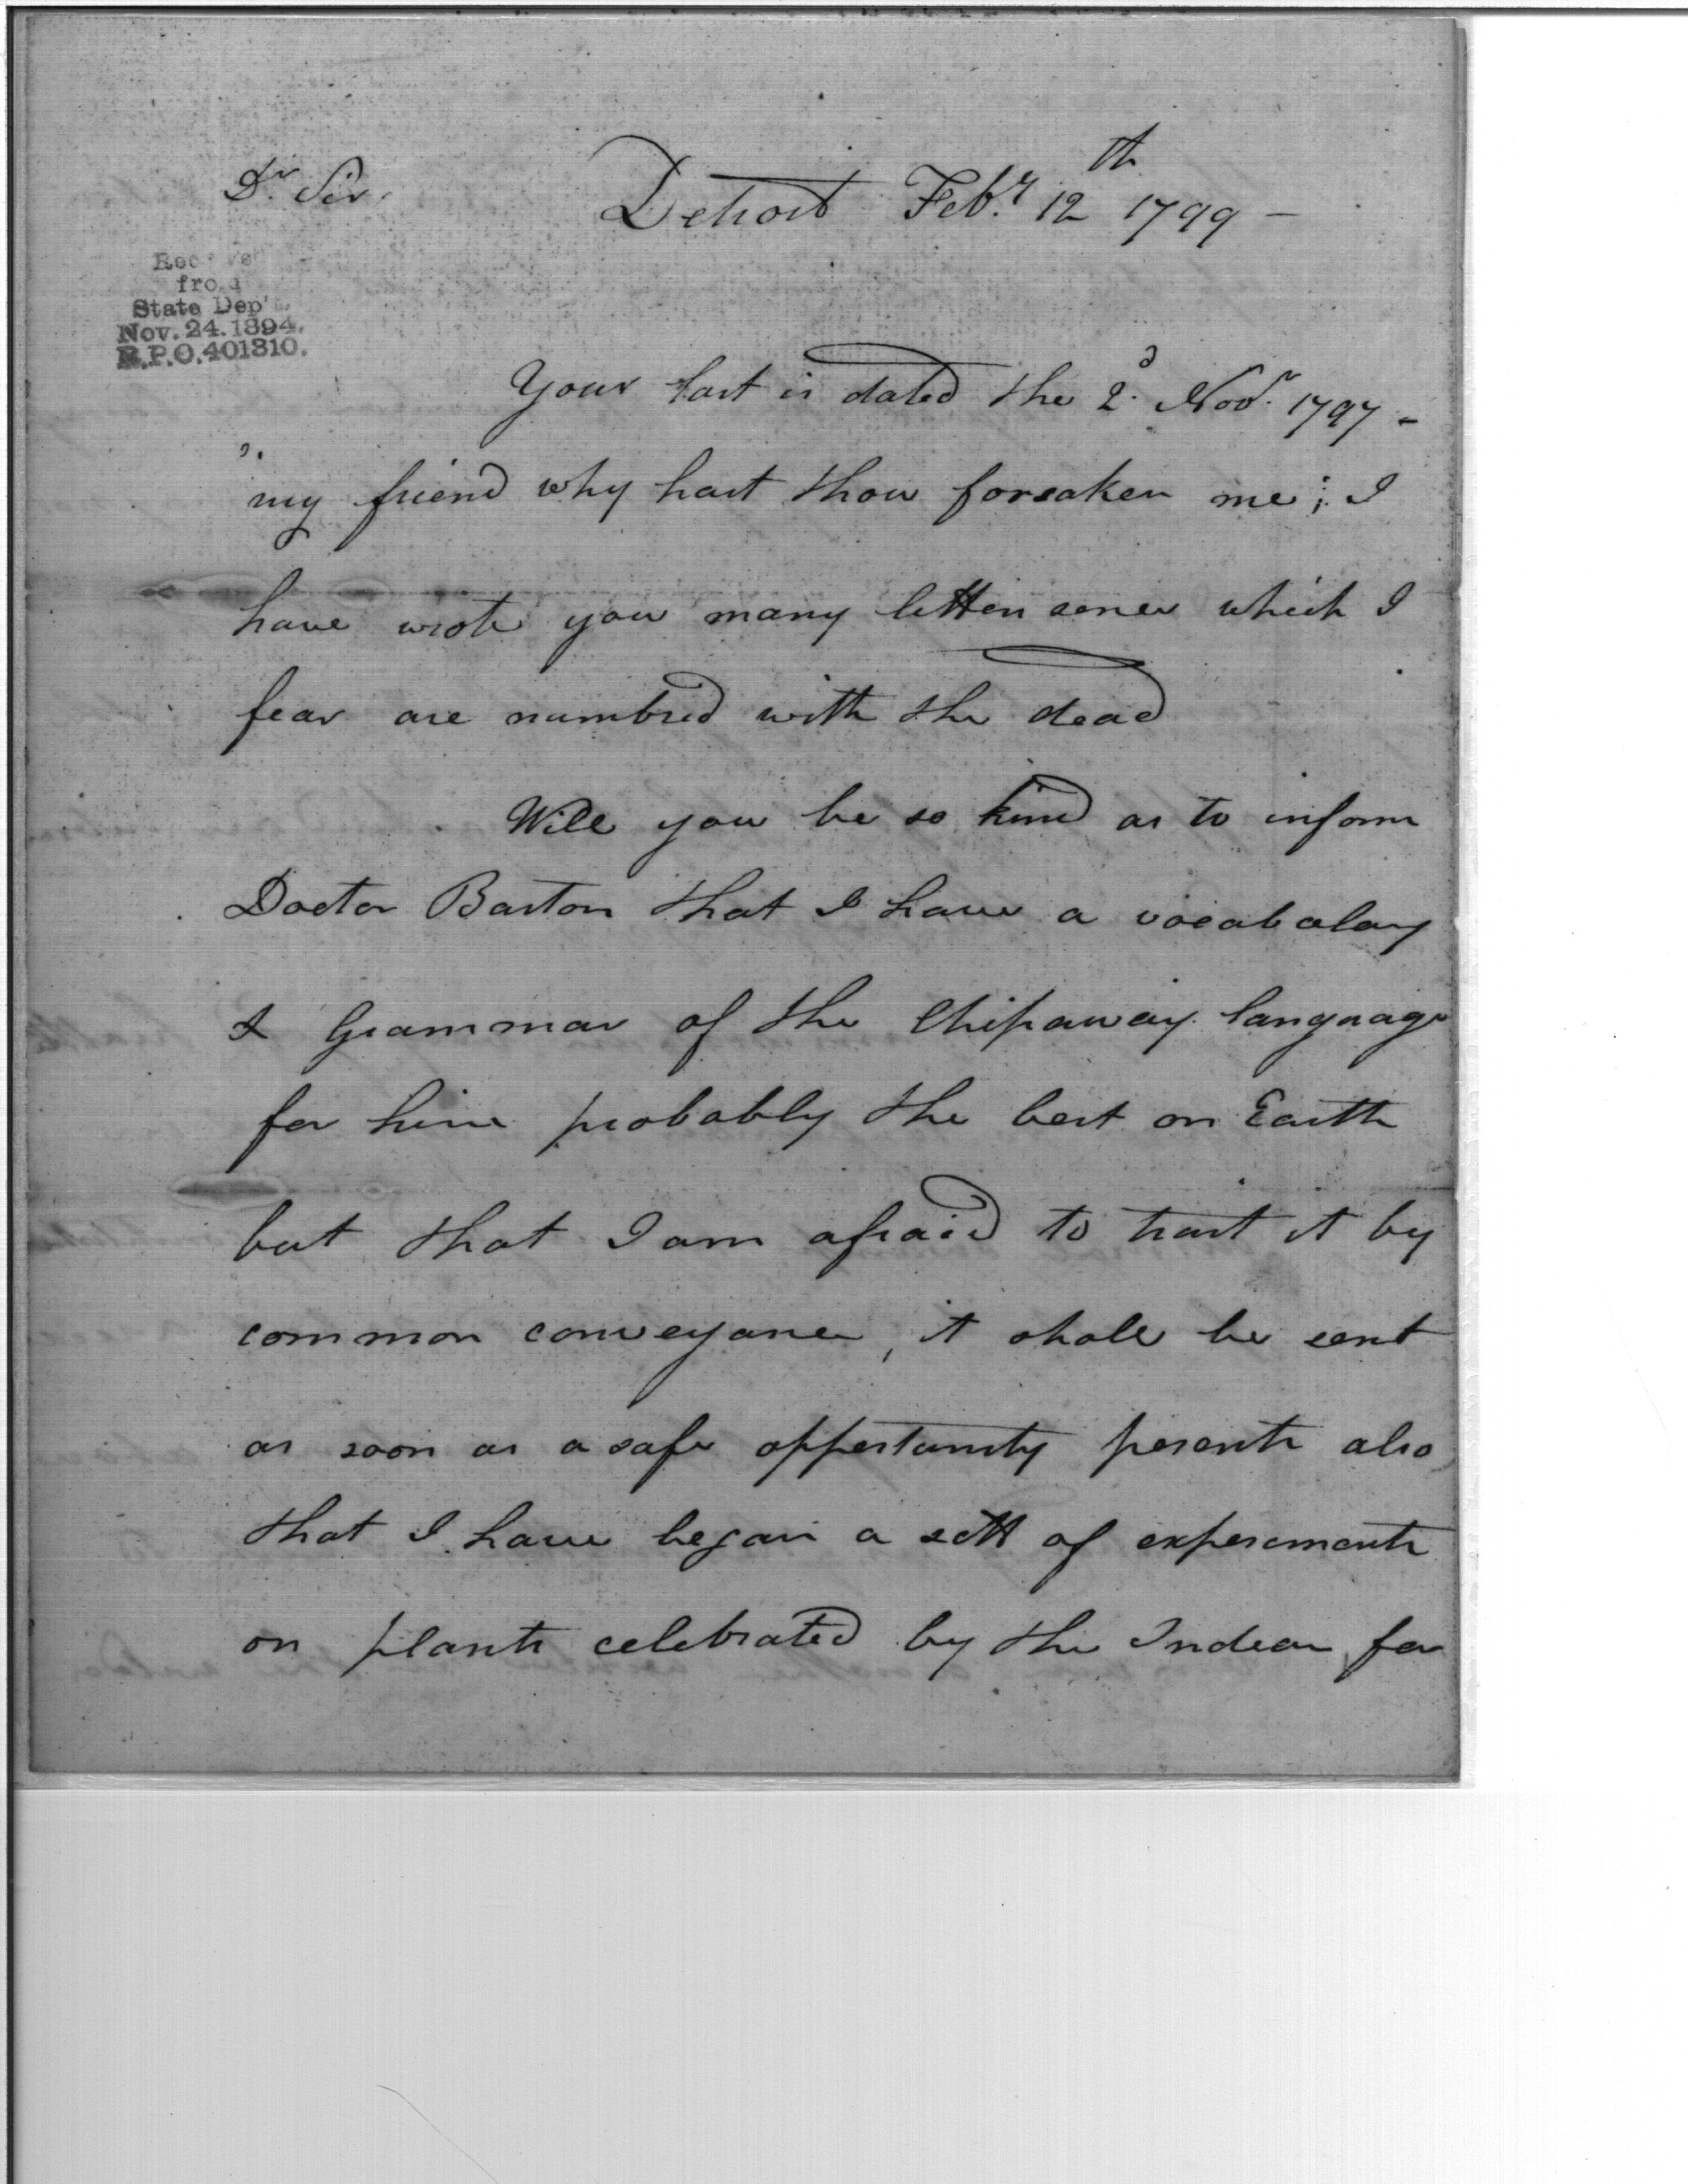 Dr. Sir,
Detroit Feby. 12th 1799 –
Received
from
State Dep't
Nov. 24. 1894.
R.P.O. 401310.
Your last is dated the 2d. Novr. 1797 –
my friend why hast thou forsaken me; I
have wrote you many letters sence which I
fear are numbred with the dead
Will you be so kind as to inform
Doctor Barton that I have a vocabalary
& Grammar of the Chipaway language
for him probably the best on Earth
but that I am afraid to trust it by
common conveyance, it shall be sent
as soon as a safe oppertunity presents also
that I have began a sett of experements
on plants celebrated by the Indean for